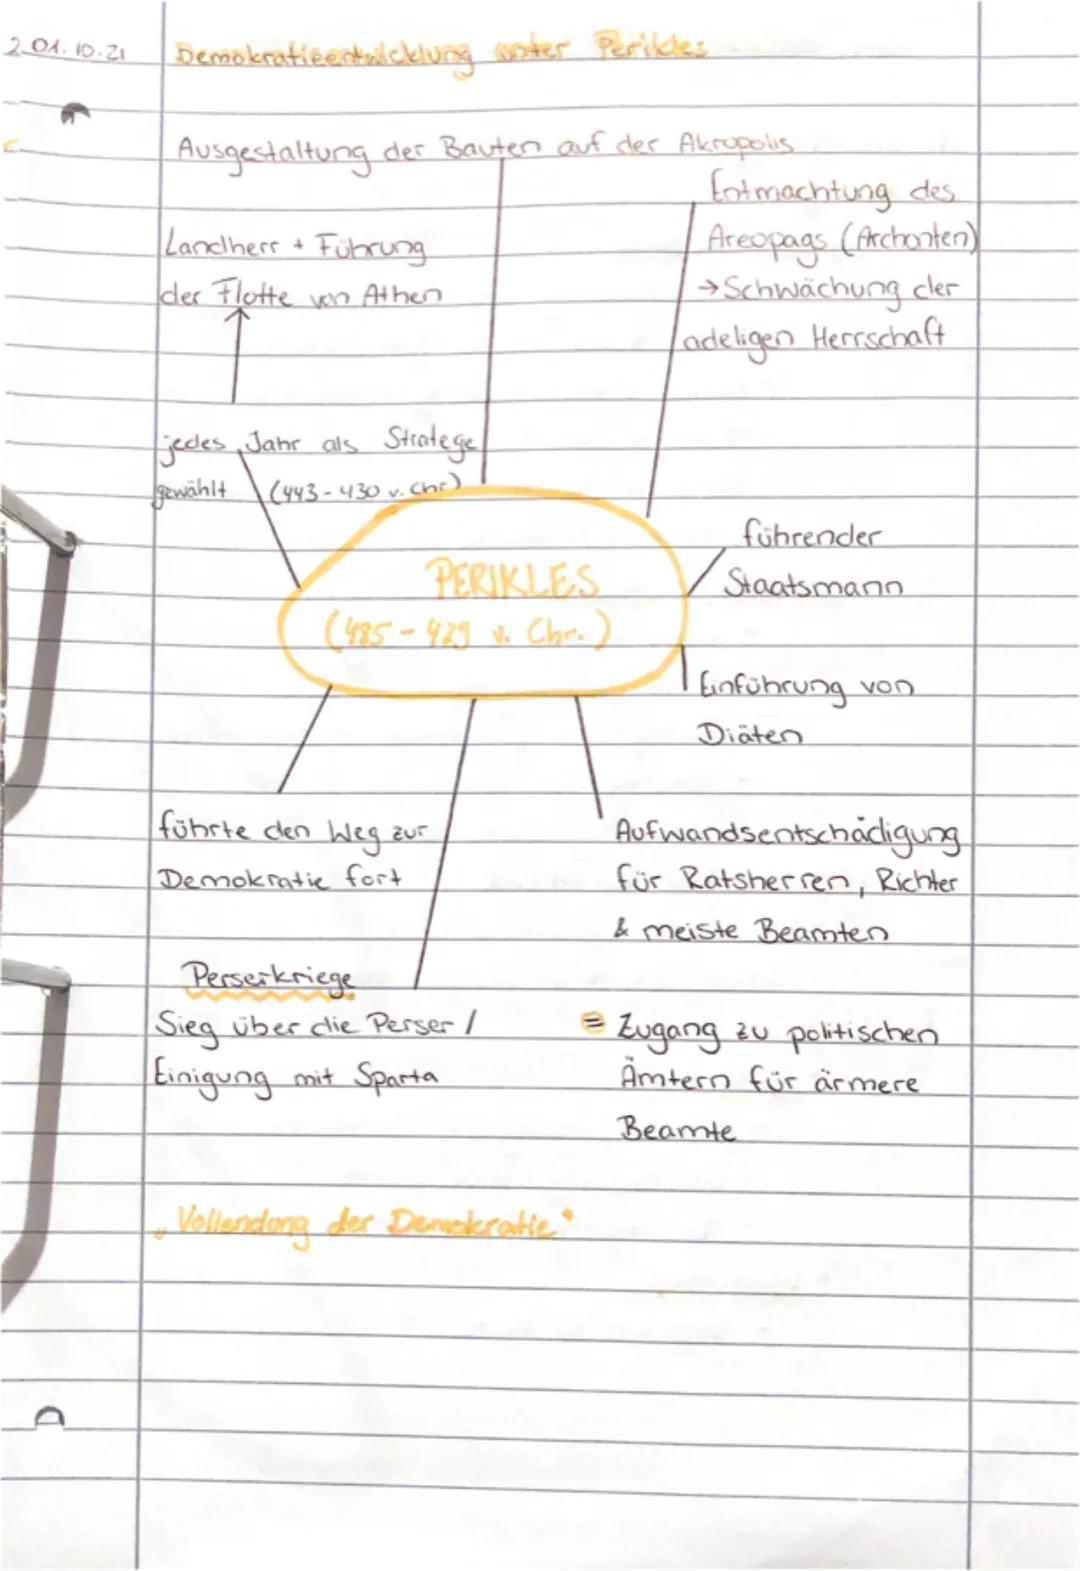 2.01.10.21
Demokratieentwicklung unter Perikles
Ausgestaltung der Bauten auf der Akropolis
Entmachtung des
Areopags (Archonten)
→ Schwächung der
adeligen Herrschaft
Landherr + Führung
der Flotte von Athen
jedes Jahr als Stratege
gewählt (443-430 v. Chr.)
PERIKLES
(485-429 v. Chr.)
führender
Staatsmann
Einführung von
Diäten
führte den Weg zur
Demokratie fort
Aufwandsentschädigung
für Ratsherren, Richter
& meiste Beamten
Perserkriege
Sieg über die Perser /
Einigung mit Sparta
= Zugang zu politischen
Ämtern für ärmere
Beamte
„Vollendung der Demokratie"